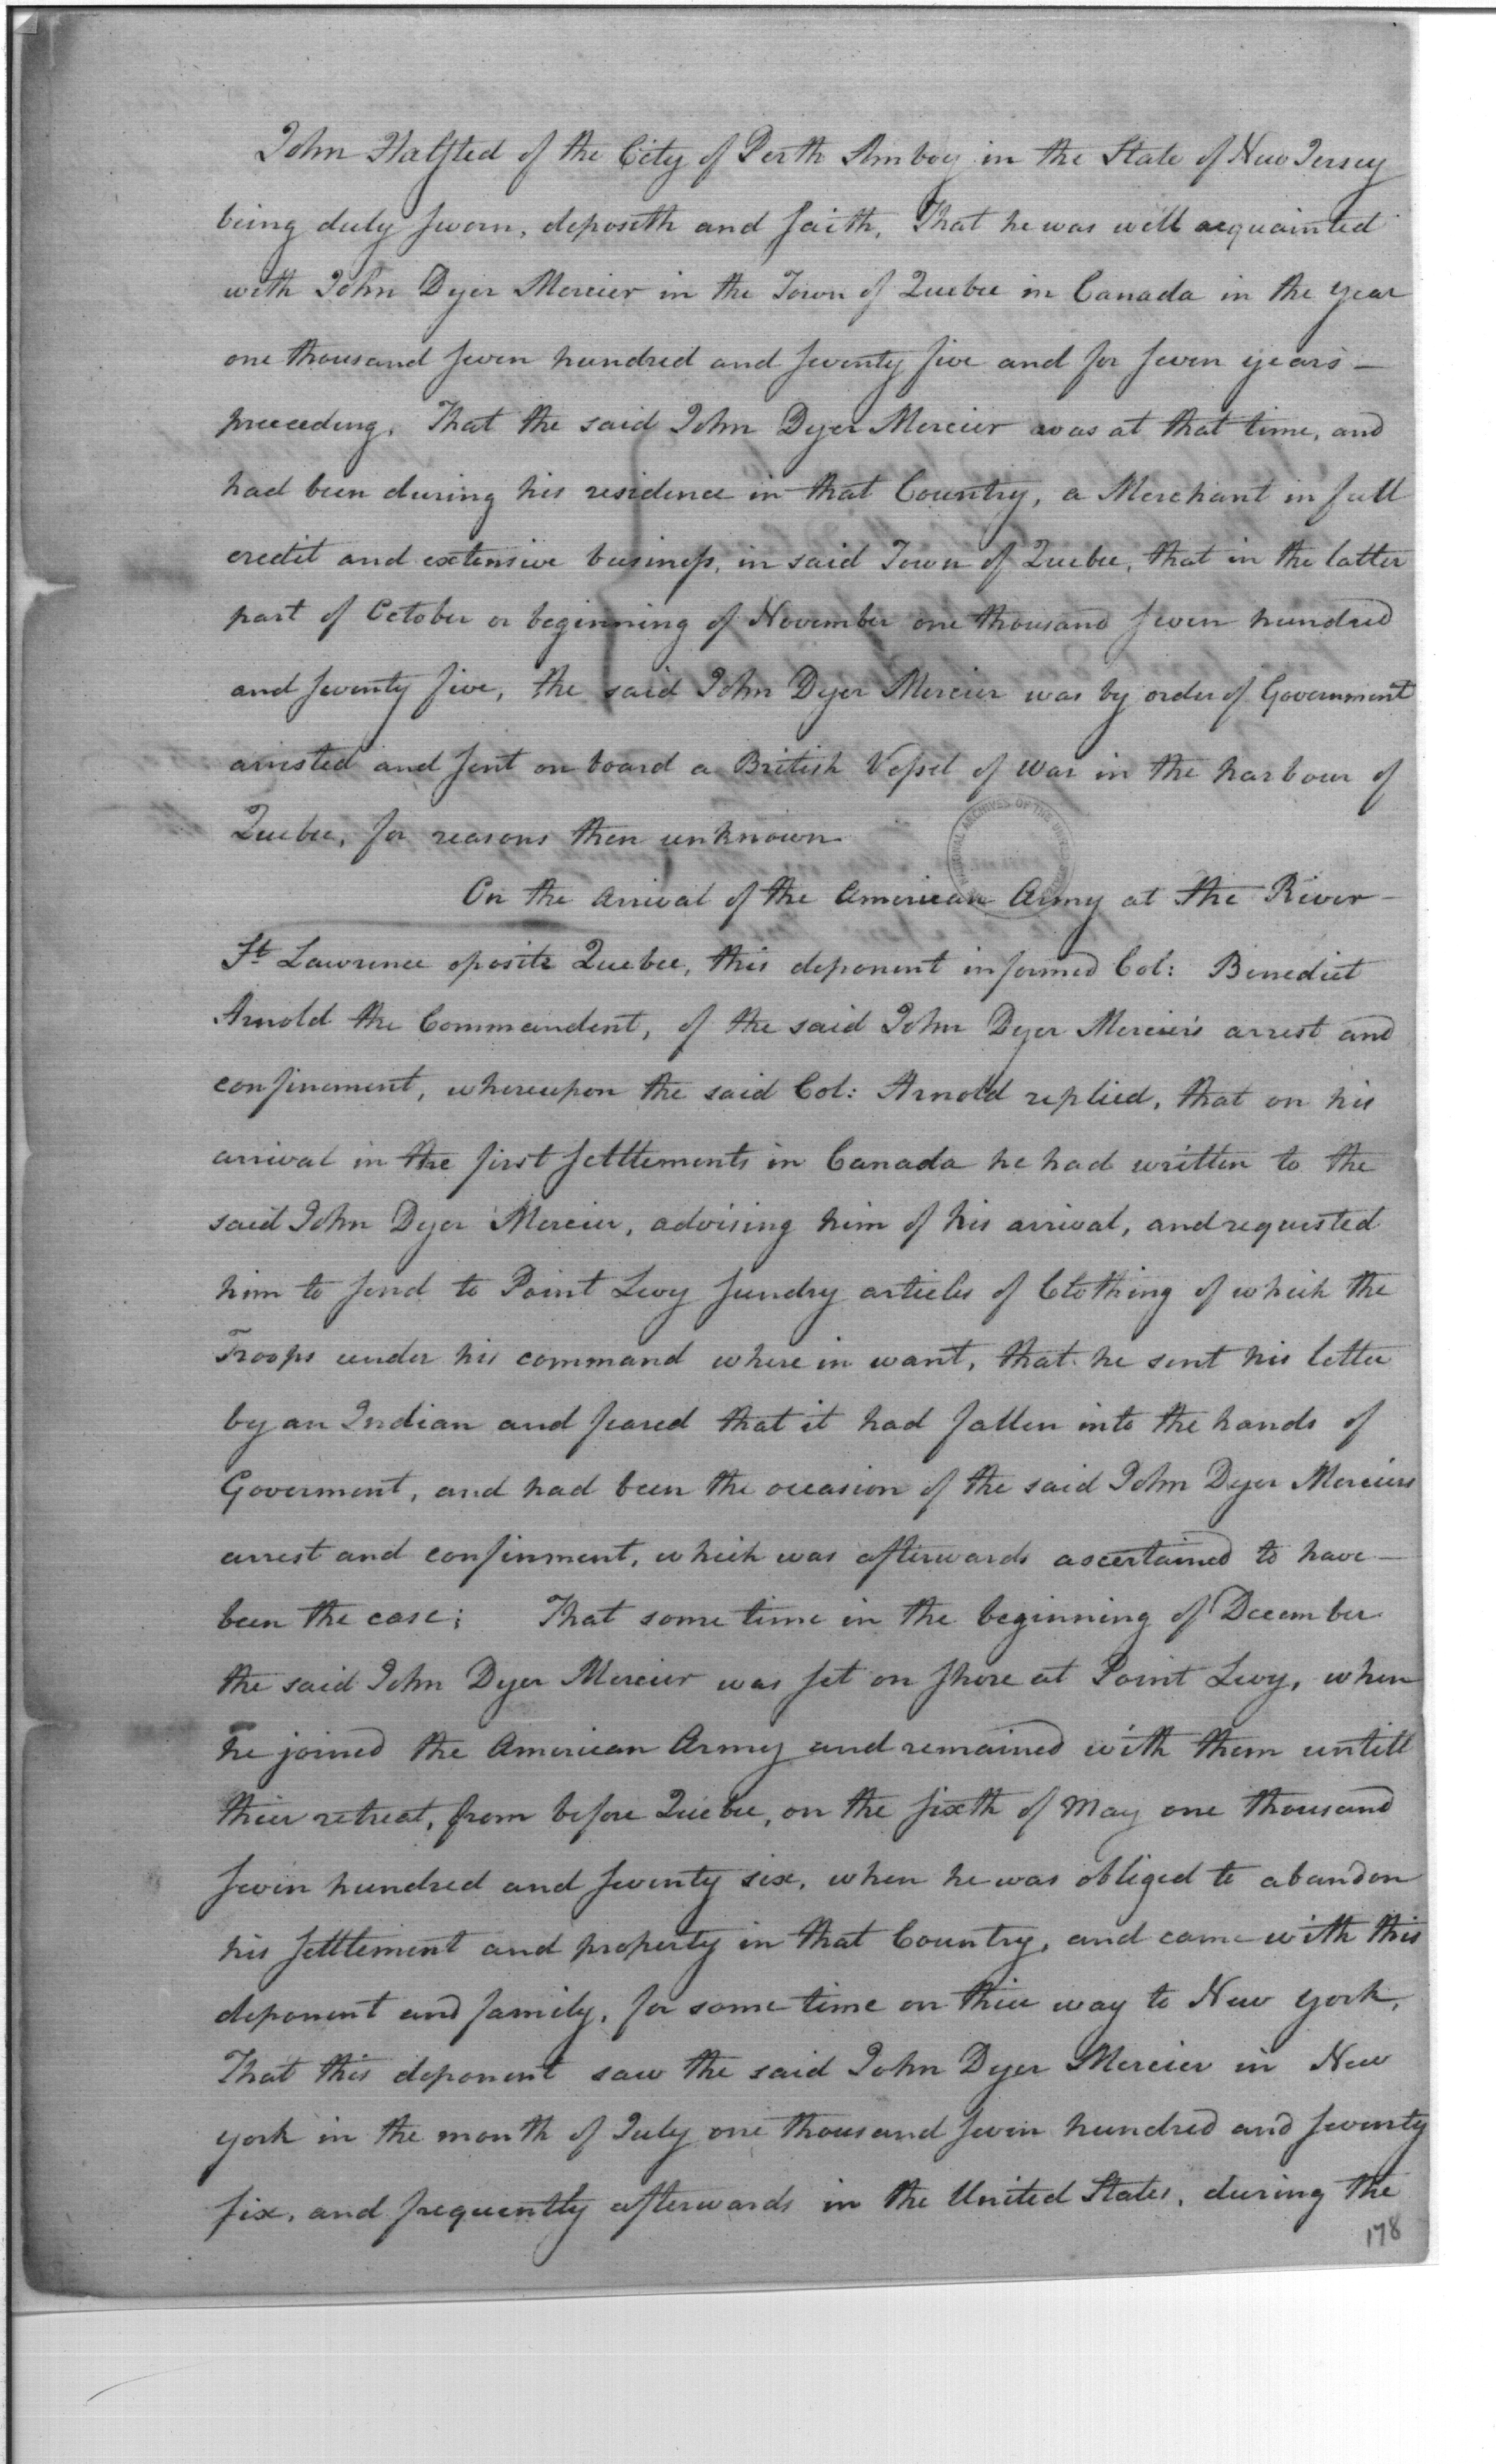 John Halsted of the City of Perth Amboy in the State of New Jersey
being duly sworn, deposeth and saith, That he was well acquainted
with John Dyer Mercier in the Town of Quebec in Canada in the year
one thousand seven hundred and seventy five and for seven years –
preceeding. That the said John Dyer Mercier was at that time, and
had been during his residence in that Country, a Merchant in full
credit and extensive business, in said Town of Quebec, that in the latter
part of October or beginning of November one thousand seven hundred
and seventy five, the said John Dyer Mercier was by order of Government
arrested and sent on board a British Vessel of War in the harbour of
Quebec, for reasons then unknown
On the arrival of the American Army at the River –
St Lawrence oposite Quebec, this deponent informed Col: Benedict
Arnold the Commandent, of the said John Dyer Mercier's arrest and
confinement, whereupon the said Col: Arnold replied, that on his
arrival in the first settlements in Canada he had written to the
said John Dyer Mercier, advising him of his arrival, and requested
him to send to Point Levy sundry articles of Clothing of which the
Troops under his command where in want, that he sent his letter
by an Indian and feared that it had fallen into the hands of
Goverment, and had been the occasion of the said John Dyer Merciers
arrest and confinment, which was afterwards ascertained to have –
been the case; That some time in the beginning of December
the said John Dyer Mercier was set on shore at Point Levy, when
he joined the American Army and remained with them untill
their retreat, from before Quebec, on the sixth of May one thousand
seven hundred and seventy six, when he was obliged to abandon
his settlement and property in that Country, and came with this
deponent and family, for some time on thier way to New York,
That this deponent saw the said John Dyer Mercier in New
york in the month of July one thousand seven hundred and seventy
six, and frequently afterwards in the United States, during the
178